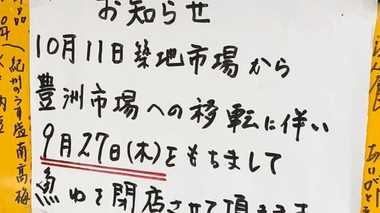 お知らせ
10月11日築地市場から
豊洲市場への移転に伴い
9月27日(木)をもちまして
魚や を閉店させて頂きます
紀州のうす塩南高梅